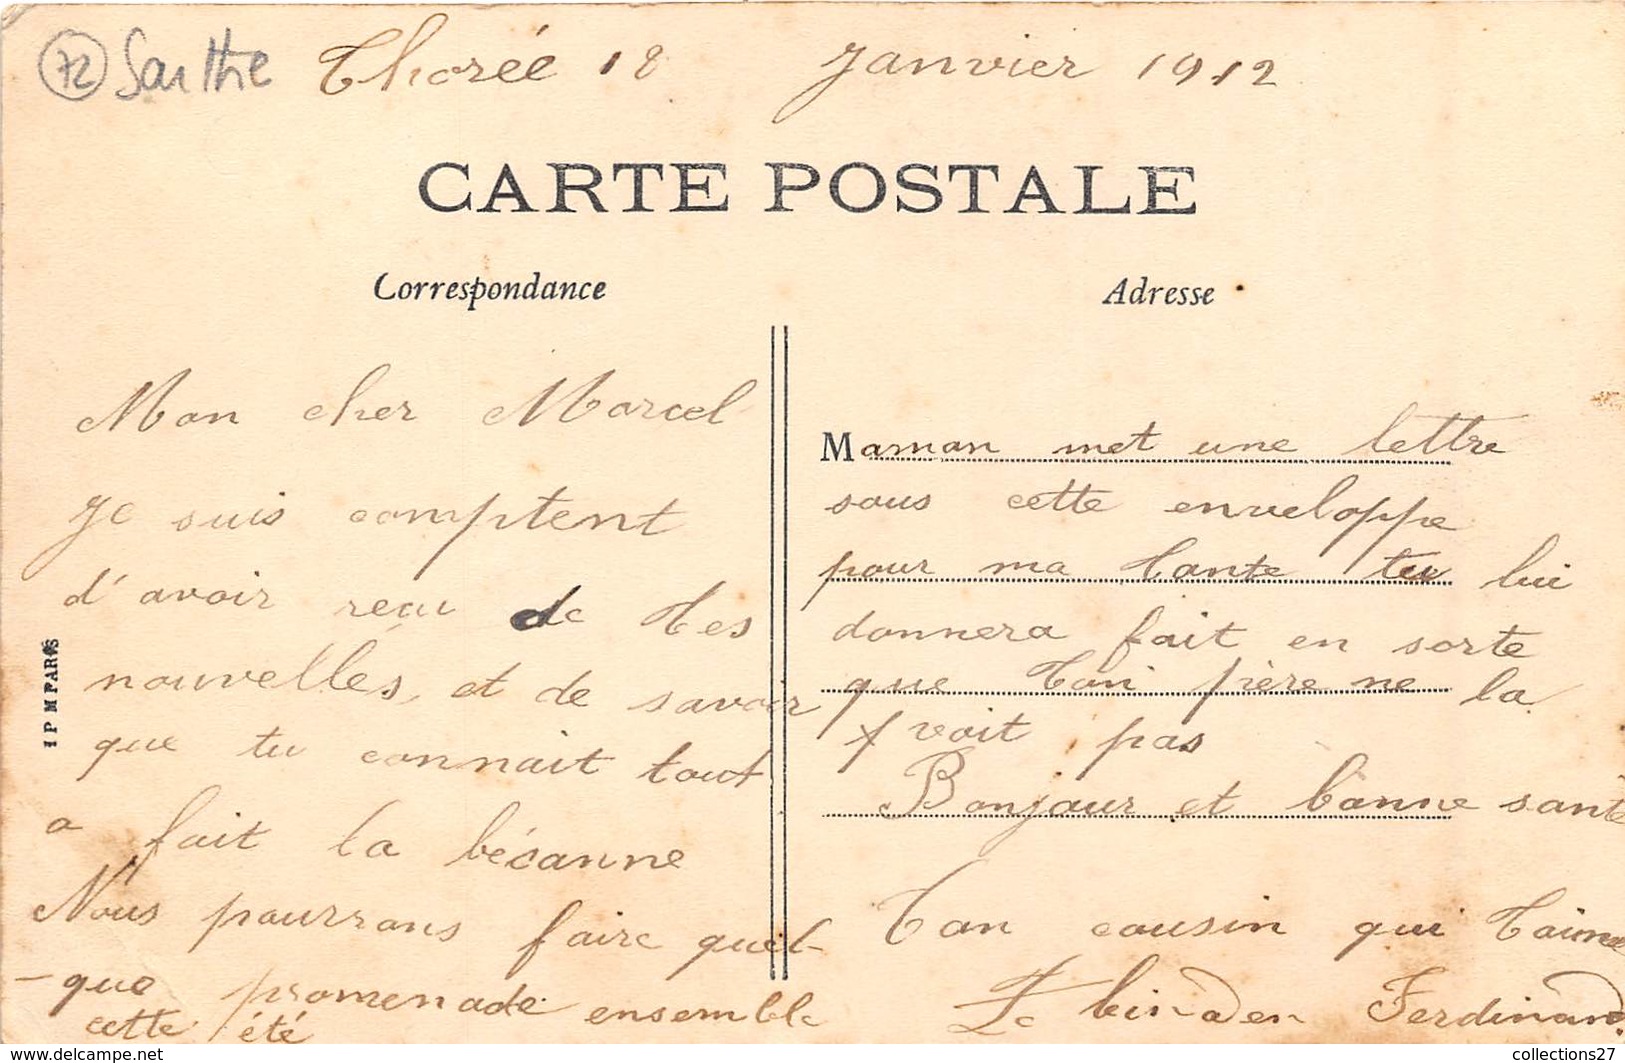 72 Sarthe Thorée 18 Janvier 1912
CARTE POSTALE
Correspondance
Mon cher Marcel
Je suis comptent
d'avoir reçu de tes
nouvelles, et de savoir
que tu connait tout
a fait la bécanne
Nous pourrons faire quel-
-que promenade ensemble
cette été
Adresse
Maman met une lettre
sous cette enveloppe
pour ma tante tu lui
donnera fait en sorte
que ton père ne la
voit pas
Bonjour et bonne santé
Ton cousin qui t'aime
Ferdinand
I P M PARIS
collections27